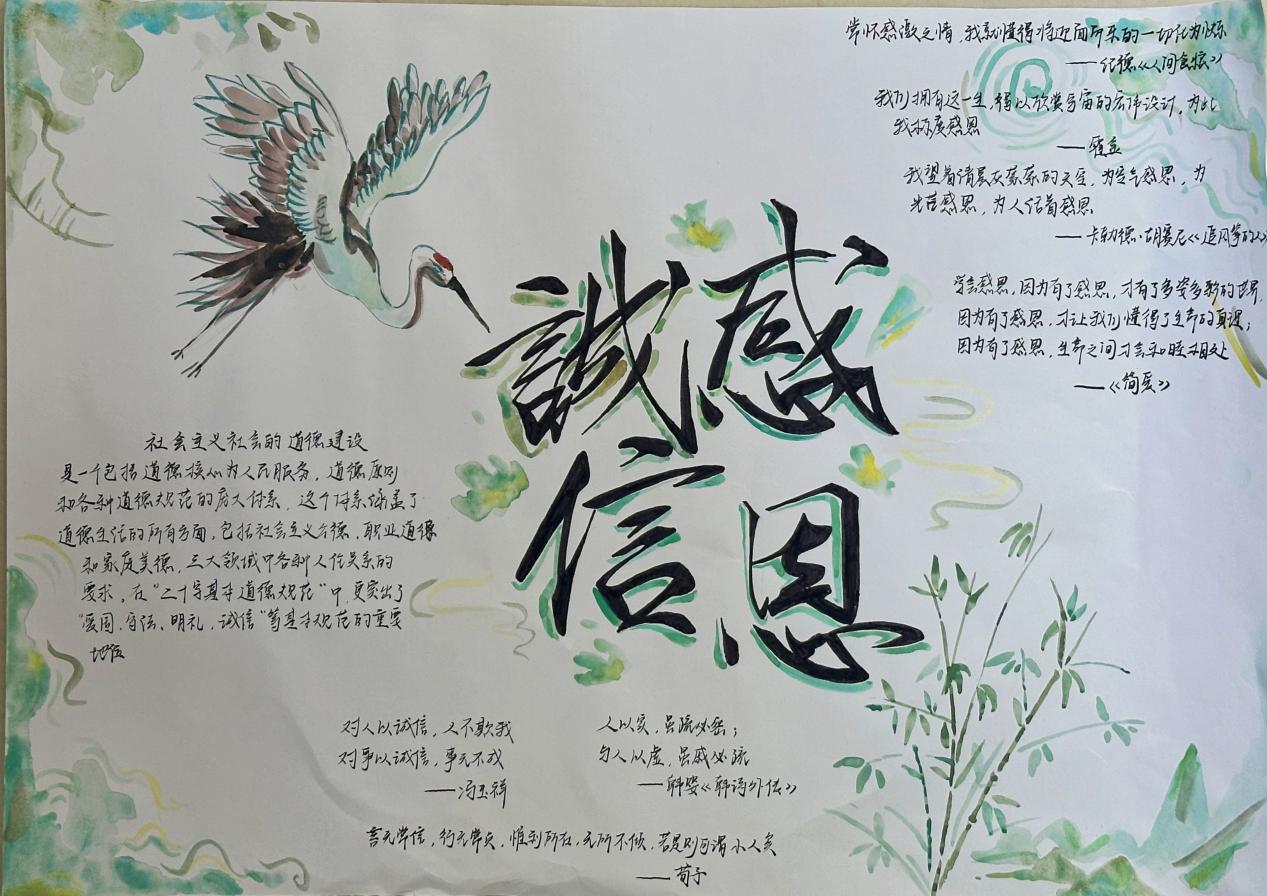 常怀感激之情，我就懂得将迎面所来的一切化为快乐
——纪德《人间食粮》
我们拥有这一生，得以欣赏宇宙的宏伟设计，为此
我极度感恩
——霍金
我望着清晨灰蒙蒙的天空，为空气感恩，为
光芒感恩，为人活着感恩
——卡勒德·胡赛尼《追风筝的人》
学会感恩，因为有了感恩，才有了多姿多彩的世界，
因为有了感恩，才让我们懂得了生命的真谛；
因为有了感恩，生命之间才会和睦相处
——《简爱》
誠信
感恩
社会主义社会的道德建设
是一个包括道德核心为人民服务，道德原则
和各种道德规范的庞大体系，这个体系涵盖了
道德生活的所有方面，包括社会主义公德，职业道德
和家庭美德，三大领域中各种人伦关系的
要求，在“二十字基本道德规范”中，更突出了
“爱国、守法、明礼、诚信”等基本规范的重要
地位
对人以诚信，人不欺我
对事以诚信，事无不成
——冯玉祥
人以实，虽疏必密；
与人以虚，虽戚必疏
——韩婴《韩诗外传》
言无常信，行无常贞，惟利所在，无所不倾，若是则可谓小人矣
——荀子